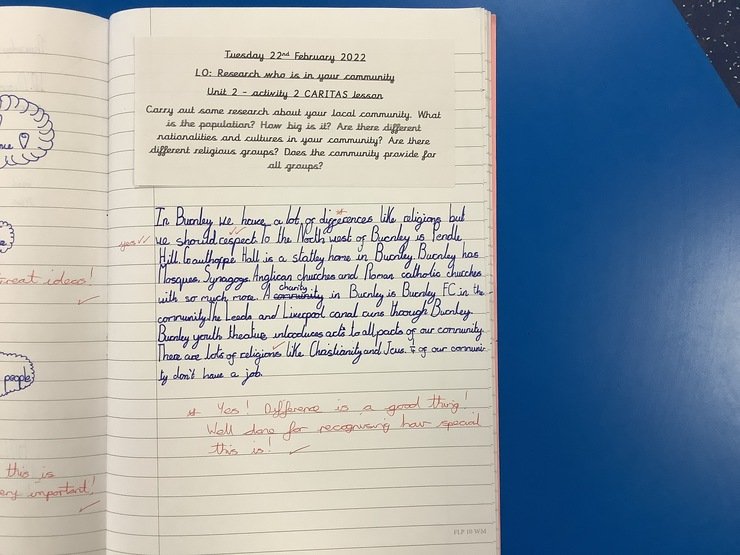 Tuesday 22nd February 2022
LO: Research who is in your community
Unit 2 - activity 2 CARITAS lesson
Carry out some research about your local community. What
is the population? How big is it? Are there different
nationalities and cultures in your community? Are there
different religious groups? Does the community provide for
all groups?
In Burnley we have a lot of differences like religions but
yes ✓✓ we should respect to the North west of Burnley is Pendle
Hill. Hall is a statley home in Burnley. Burnley has
Mosques, Synagogs, Anglican churches and Roman catholic churches
with so much more. A charity in Burnley is Burnley FC in the
community. The Leeds and Liverpool canal runs through Burnley.
Burnley youth theatre introduces acts to all parts of our community.
There are lots of religions like Christianity and Jews. of our communi-
ty don't have a job.
* Yes! Difference is a good thing!
Well done for recognising how special
this is! ✓
reat ideas!
✓
people
this is
ery important!
✓
FLP 10 WM